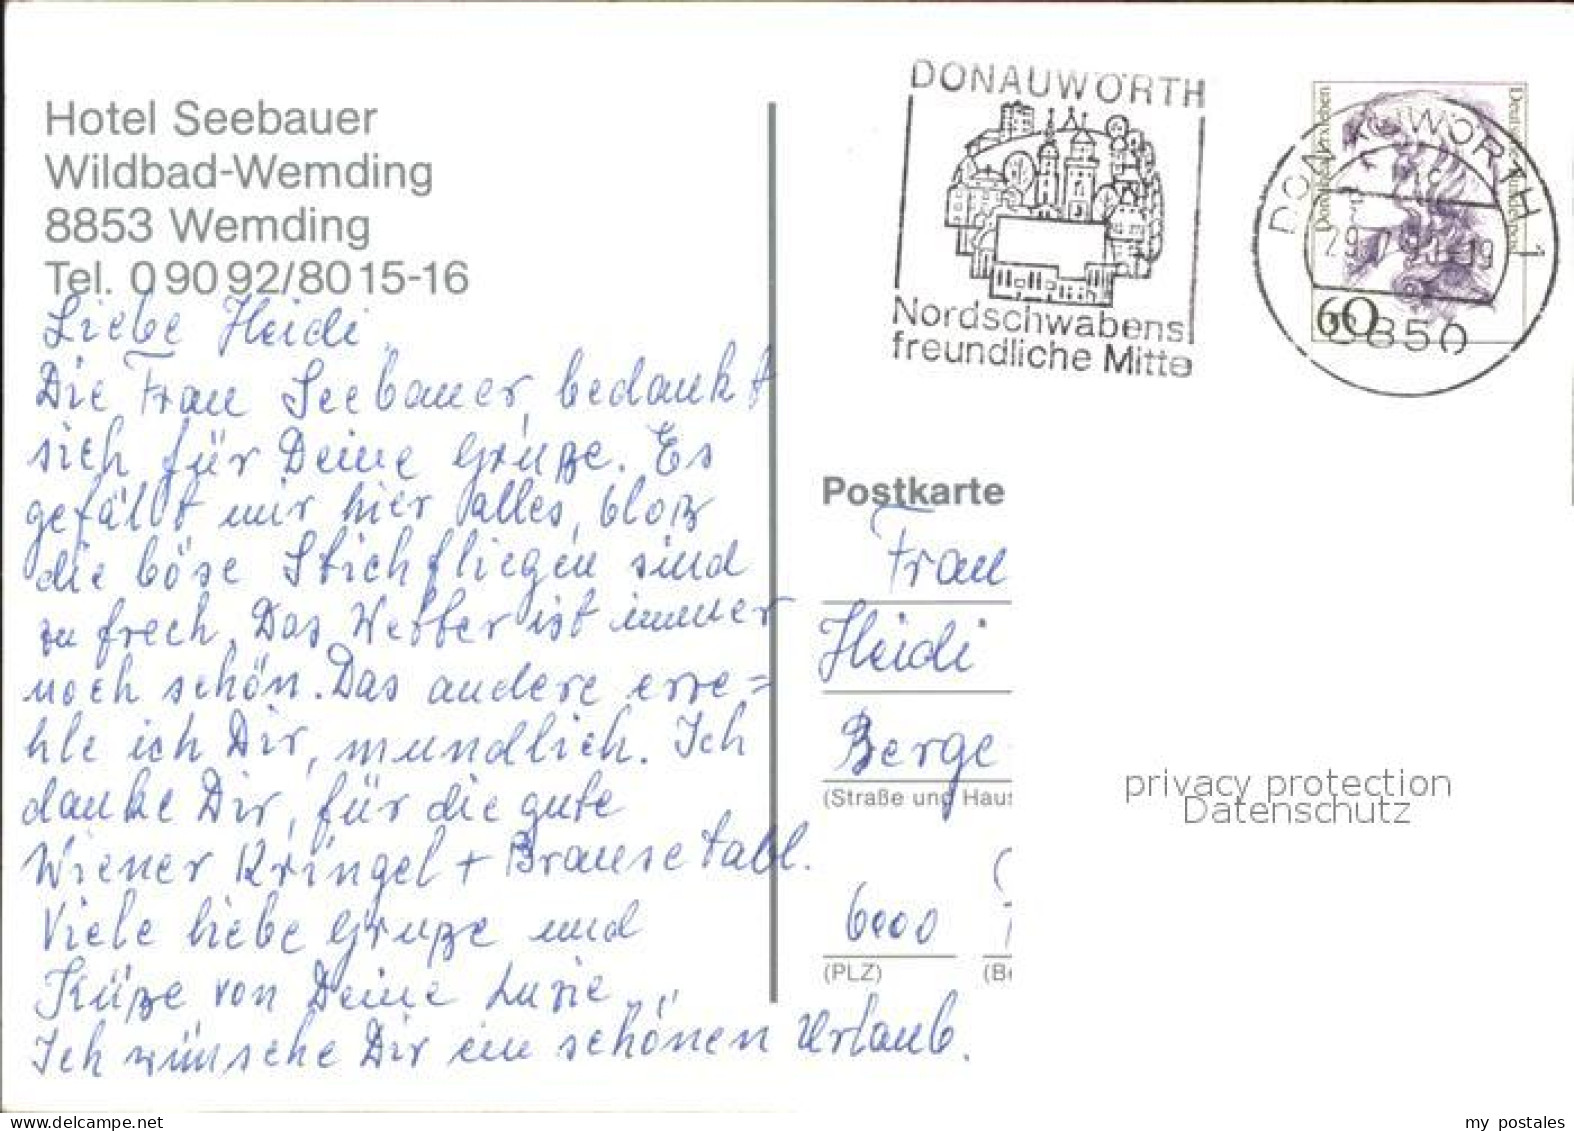 Hotel Seebauer
Wildbad-Wemding
8853 Wemding
Tel. 09092/8015-16
Liebe Heidi
Die Frau Seebauer, bedankt
sich für Deine Grüße. Es
gefällt mir hier alles, bloß
die böse Stichfliegen sind
zu frech, Das Wetter ist immer
noch schön. Das andere erre=
hle ich Dir, mundlich. Ich
danke Dir, für die gute
Wiener Kringel + Brausetabl.
Viele liebe Grüße und
Küße von Deine Lusie
Ich wünsche Dir ein schönen Urlaub.
DONAUWÖRTH
Nordschwabens
freundliche Mitte
DONAUWÖRTH 1
-19
8850
Deutsche Bundespost
Dorothea Erxleben
60
Postkarte
Frau
Heidi
Berge
(Straße und Haus
6000
(PLZ)
(Be
privacy protection
Datenschutz
delcampe.net
my postales